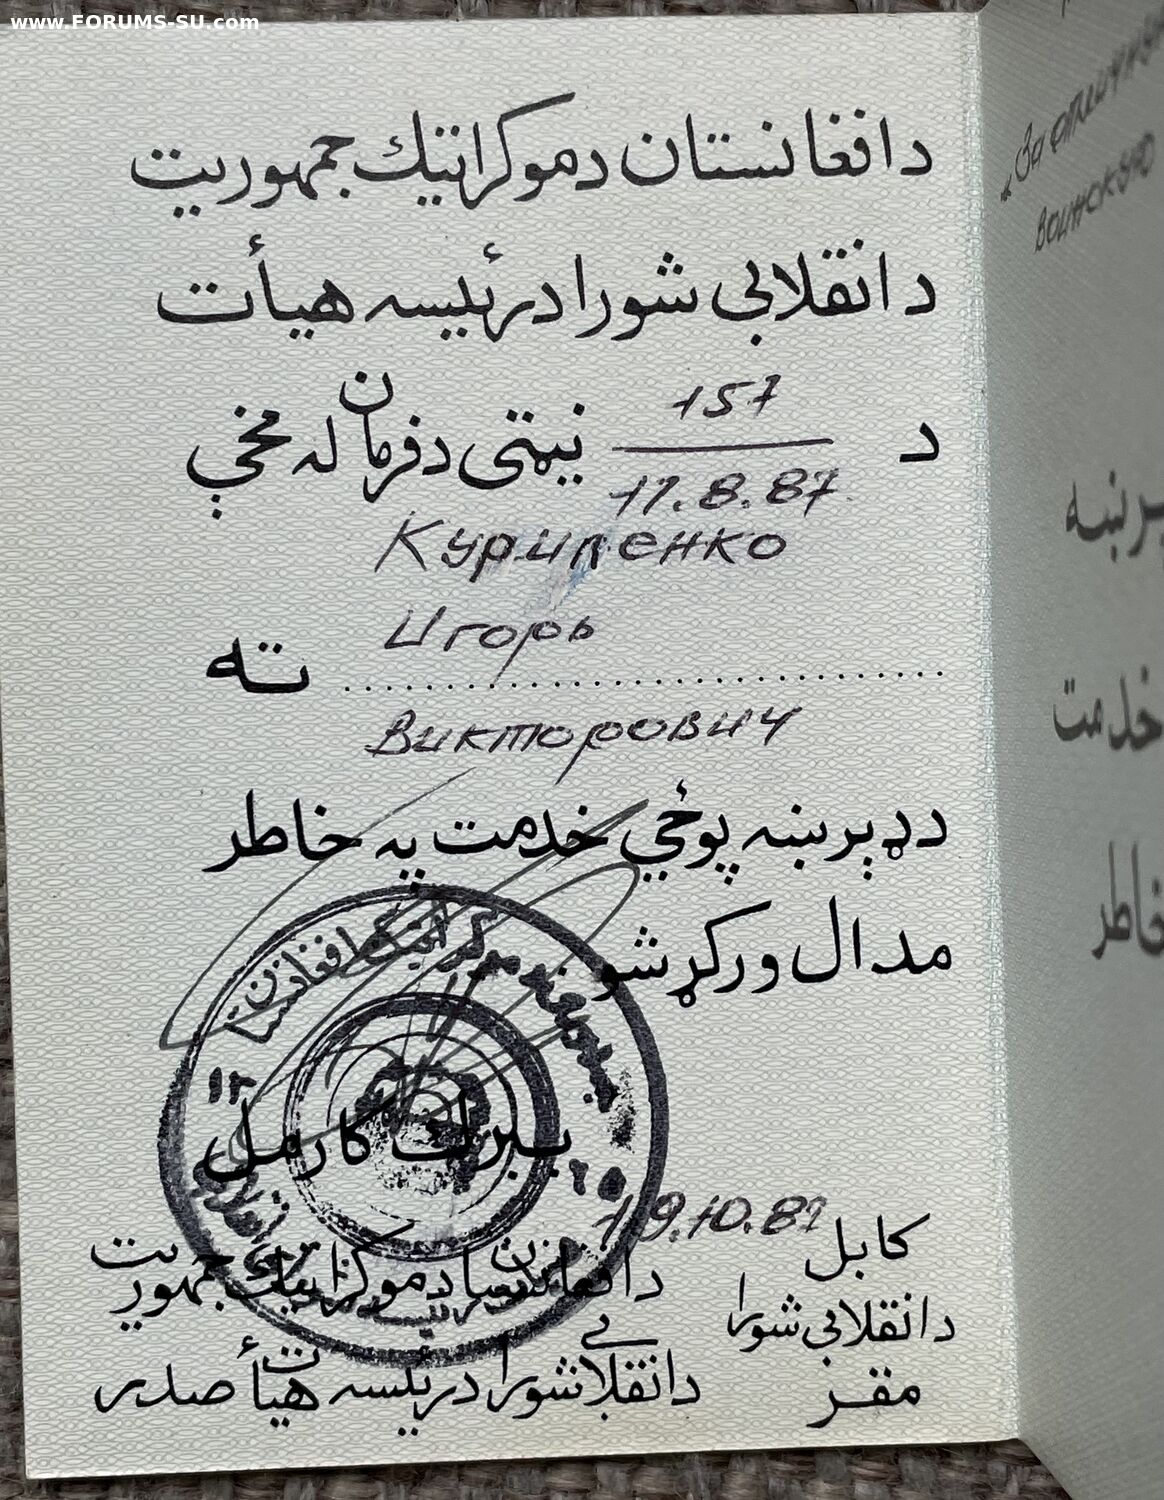 www.FORUMS-SU.com
د افغانستان دموکراتیک جمهوریت
د انقلابی شورا د رئیسه هیأت
د 157 نیټی د فرمان له مخې
17.8.87
Игорь
ته
Викторович
د ډېر ښه پوځي خدمت په خاطر
مدال ورکړ شو
ببرک کارمل
19.10.87
کابل
د افغانستان د موکراتیک جمهوریت
د انقلابی شورا
د انقلابی شورا د رئیسه هیأت صدر
مقر
"За отличную
воинскую
ښه
خدمت
خاطر